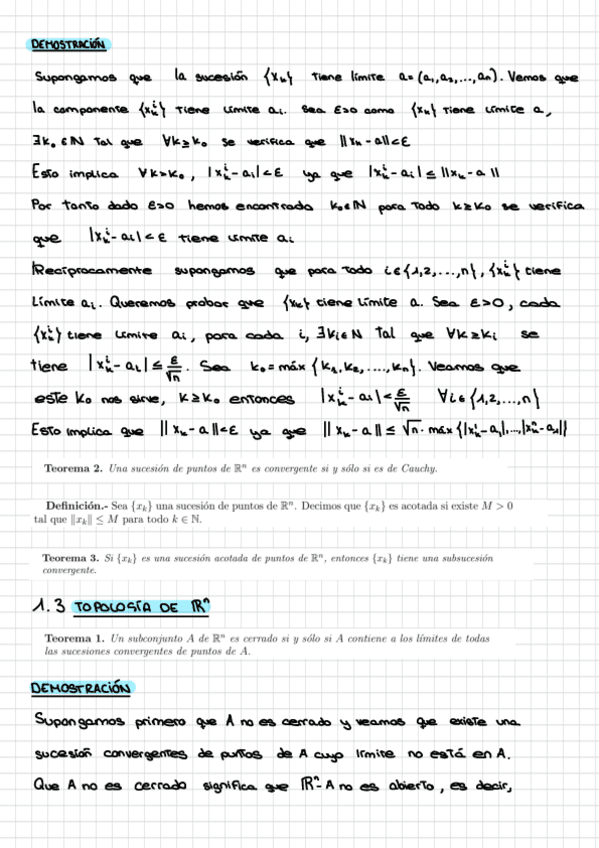 DEMOSTRACIÓN
Supongamos que la sucesión {xₖ} tiene límite a=(a₁,a₂,...,aₙ). Vemos que
la componente {xₖⁱ} tiene límite aᵢ. Sea ε>0 como {xₖ} tiene límite a,
∃k₀∈ℕ tal que ∀k≥k₀ se verifica que ||xₖ-a||<ε
Esto implica ∀k>k₀, |xₖⁱ-aᵢ|<ε ya que |xₖⁱ-aᵢ|≤||xₖ-a||
Por tanto dado ε>0 hemos encontrado k₀∈ℕ para todo k≥k₀ se verifica
que |xₖⁱ-aᵢ|<ε tiene límite aᵢ
Recíprocamente supongamos que para todo i∈{1,2,...,n}, {xₖⁱ} tiene
límite aᵢ. Queremos probar que {xₖ} tiene límite a. Sea ε>0, cada
{xₖⁱ} tiene límite aᵢ, para cada i, ∃kᵢ∈ℕ tal que ∀k≥kᵢ se
tiene |xₖⁱ-aᵢ|≤ε/√n. Sea k₀=máx{k₁,k₂,...,kₙ}. Veamos que
este k₀ nos sirve, k≥k₀ entonces |xₖⁱ-aᵢ|<ε/√n ∀i∈{1,2,...,n}
Esto implica que ||xₖ-a||<ε ya que ||xₖ-a||≤√n·máx{|xₖ¹-a₁|,...,|xₖⁿ-aₙ|}
Teorema 2. Una sucesión de puntos de ℝⁿ es convergente si y sólo si es de Cauchy.
Definición.- Sea {xₖ} una sucesión de puntos de ℝⁿ. Decimos que {xₖ} es acotada si existe M > 0
tal que ||xₖ|| ≤ M para todo k ∈ ℕ.
Teorema 3. Si {xₖ} es una sucesión acotada de puntos de ℝⁿ, entonces {xₖ} tiene una subsucesión
convergente.
1.3 TOPOLOGÍA DE ℝⁿ
Teorema 1. Un subconjunto A de ℝⁿ es cerrado si y sólo si A contiene a los límites de todas
las sucesiones convergentes de puntos de A.
DEMOSTRACIÓN
Supongamos primero que A no es cerrado y veamos que existe una
sucesión convergentes de puntos de A cuyo límite no está en A.
Que A no es cerrado significa que ℝⁿ-A no es abierto, es decir,